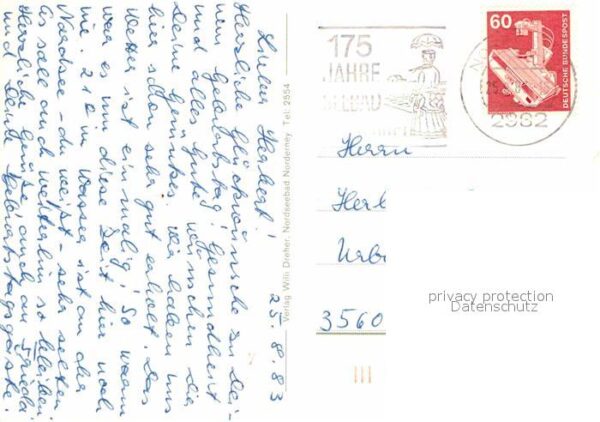 25.8.83
Lieber Herbert!
Herzliche Glückwünsche zu Dei-
nem Geburtstag! Gesundheit
und alles Gute wünschen dir
Deine Wir haben uns
hier schon sehr gut erholt. Das
Wetter ist einmalig! So warm
war es um diese Zeit hier noch
nie. 21° im Wasser ist an der
Nordsee - du weißt - sehr selten.
Es soll auch weiterhin so bleiben!
Herzliche Grüße auch an Frieda
und Deine Geburtstagsgäste.
Verlag Willi Dreher, Nordseebad Norderney Tel. 2554
175
JAHRE
2982
60
DEUTSCHE BUNDESPOST
Herrn
Herb
3560
privacy protection
Datenschutz